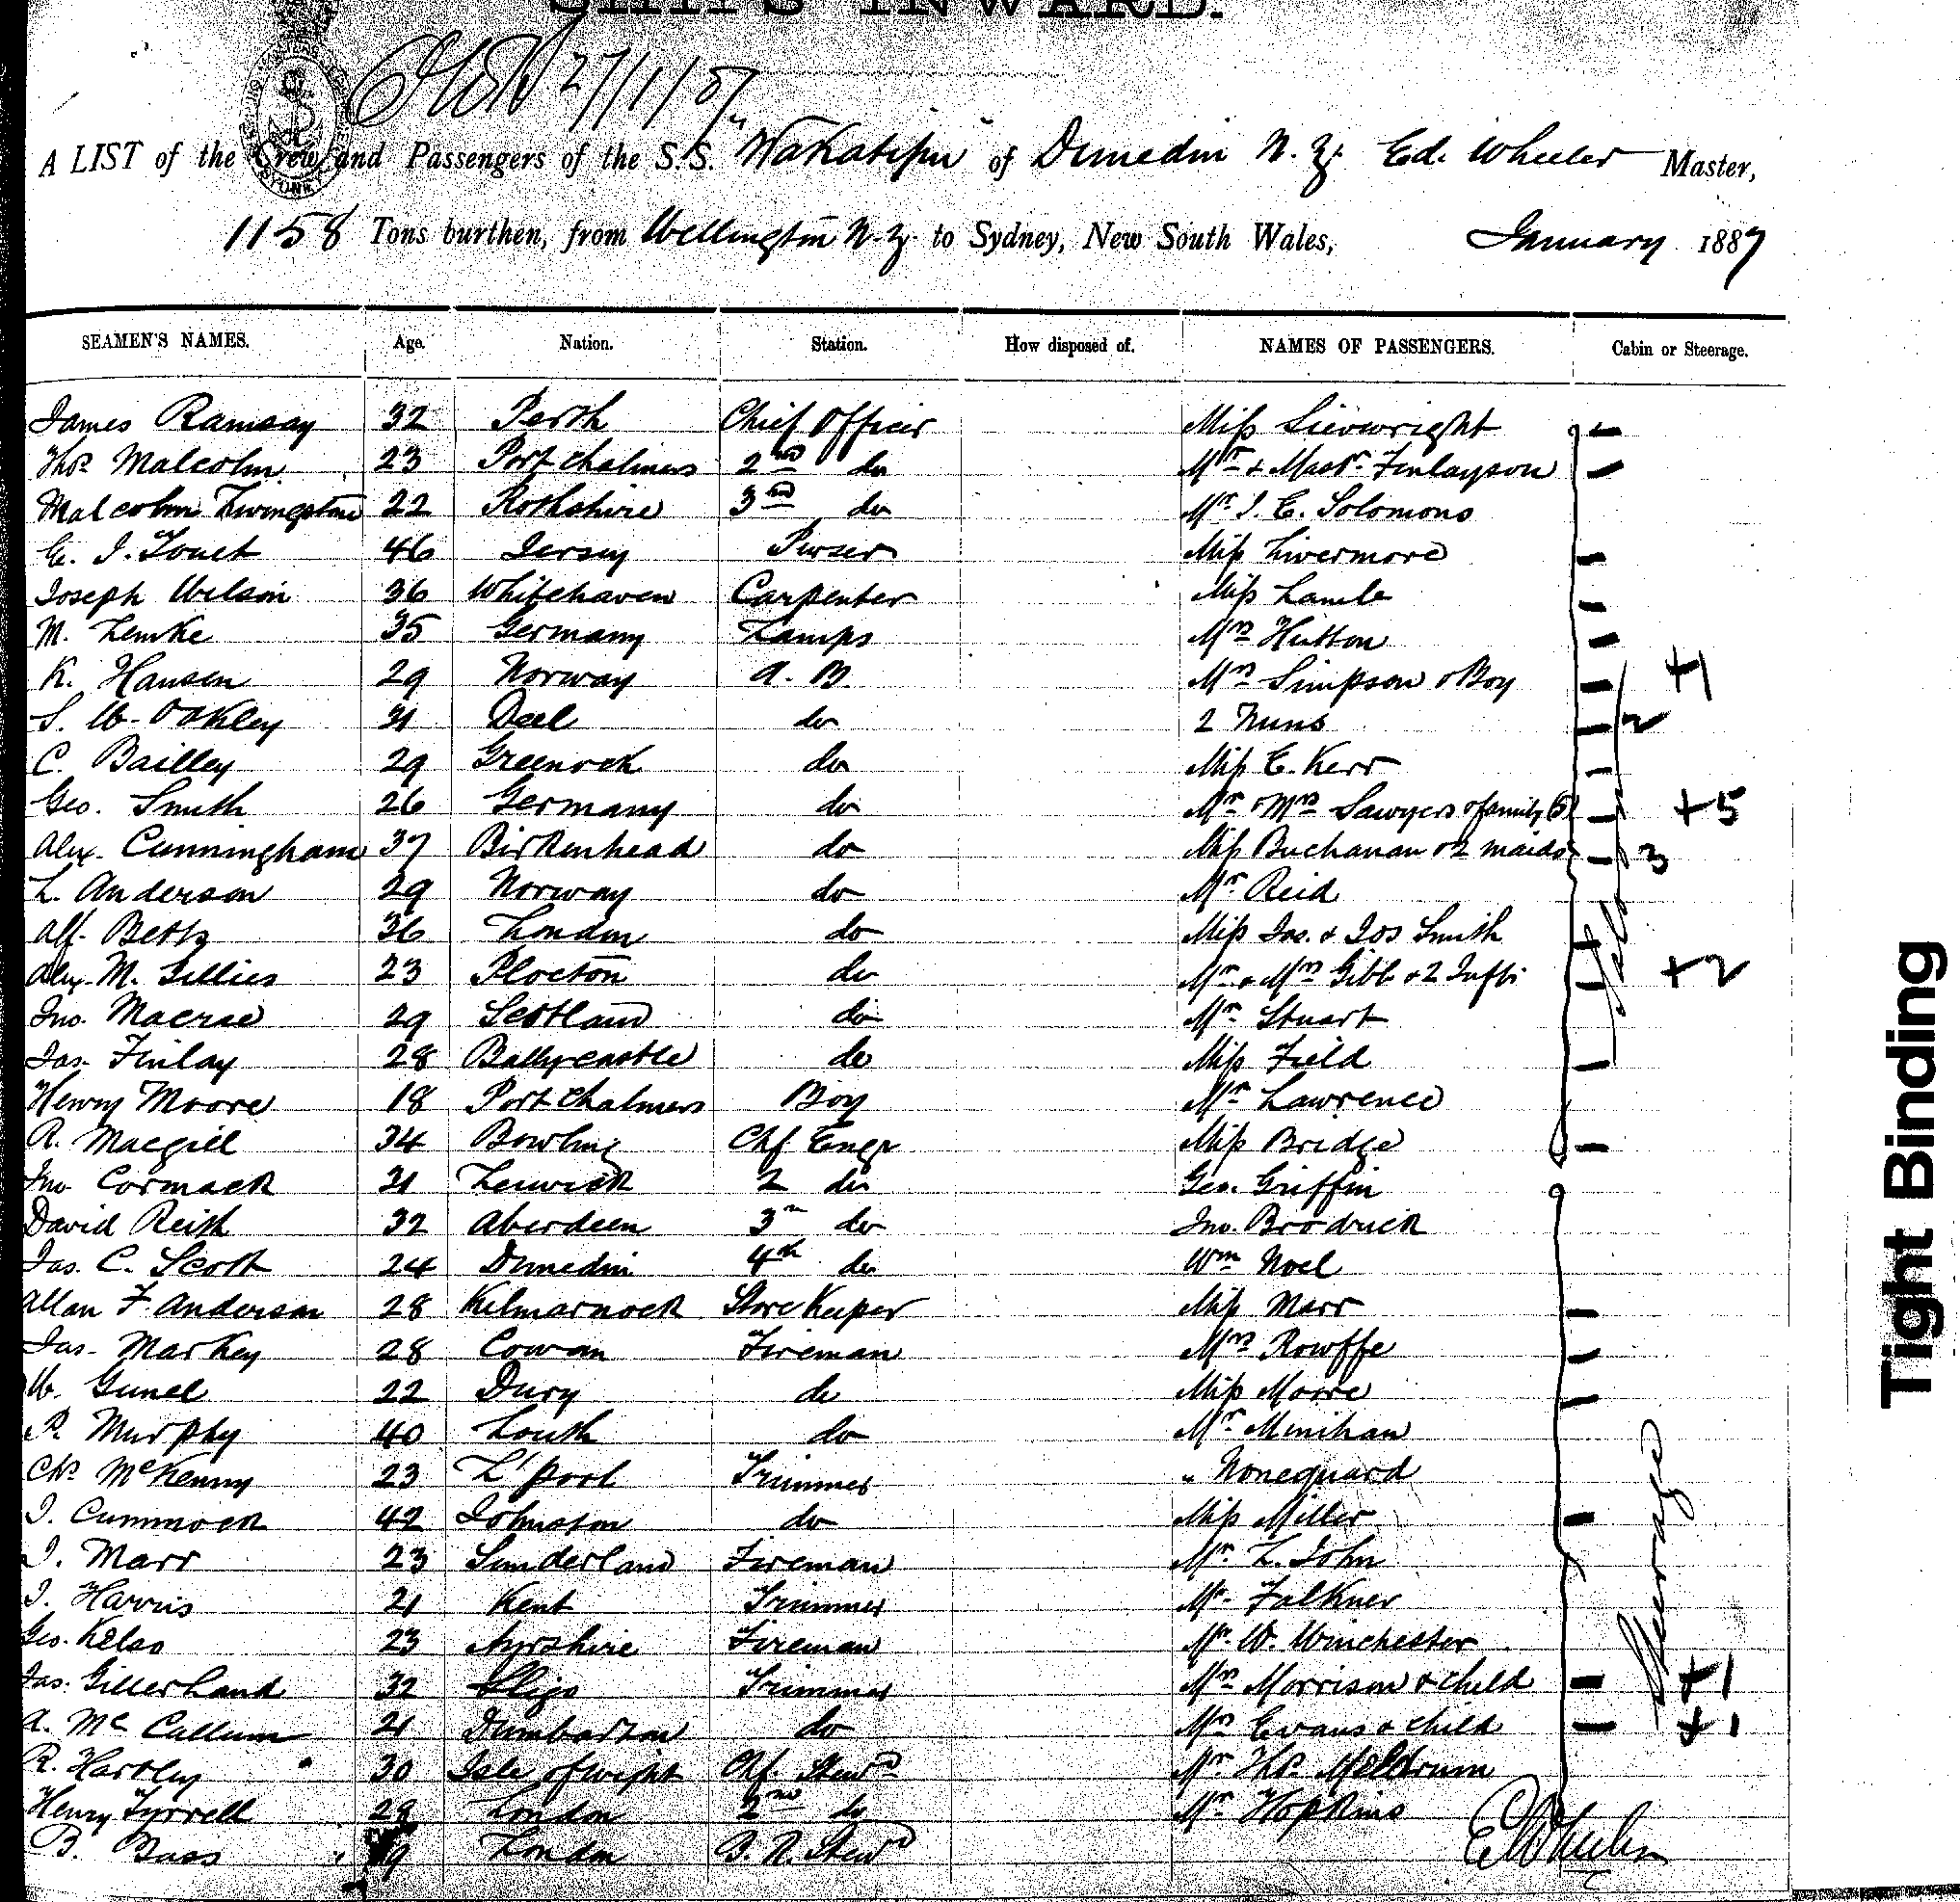 SHIPS INWARD.
27/1/87
A LIST of the Crew and Passengers of the S.S. "Wakatipu" of Dunedin N.Z. Ed. Wheeler Master,
1158 Tons burthen, from Wellington N.Z. to Sydney, New South Wales, January 1887
SEAMEN'S NAMES. Age. Nation. Station. How disposed of. NAMES OF PASSENGERS. Cabin or Steerage.
James Ramsay 32 Perth Chief Officer Miss Sievwright
Thos Malcolm 23 Port Chalmers 2nd do Mr & Mastr Finlayson
Malcolm Livingston 22 Rothshire 3rd do Mr J. E. Solomons
E. J. Touet 46 Jersey Purser Miss Livermore
Joseph Wilson 36 Whitehaven Carpenter Miss Lamb
M. Lemke 35 Germany Lamps Mrs Hutton
K. Hansen 29 Norway A. B. Mrs Simpson & Boy +1
S. W. Oakley 31 Deal do 2 Nuns 2
C. Bailley 29 Greenock do Miss E. Kerr
Geo. Smith 26 Germany do Mr & Mrs Sawyers & family (5) +5
Alex. Cunningham 37 Birkenhead do Miss Buchanan & 2 maids 3
L. Anderson 29 Norway do Mr Reid
Alf. Betts 36 London do Miss Jas. & Jos Smith
Alex. M. Gillies 23 Plocton do Mr & Mrs Gibb & 2 Infts +2
Jno. Macrae 29 Scotland do Mr Stuart
Jas. Finlay 28 Ballycastle do Miss Field
Henry Moore 18 Port Chalmers Boy Mr Lawrence
R. Macgill 34 Bowling Chf Engr Miss Bridge
Jno Cormack 31 Lerwick 2 do Geo. Griffin
David Reith 32 Aberdeen 3rd do Jno. Brodrick
Jas. C. Scott 24 Dunedin 4th do Wm Noel
Allan F. Anderson 28 Kilmarnock Store Keeper Miss Marr
Jas. Markey 28 Cowan Fireman Mrs Rowffe
W. Gunel 22 Dury do Miss Moore
P. Murphy 40 Louth do Mr Minihan
Chs McKenny 23 L'pool Trimmer " Nonequard
J. Cummock 42 Johnston do Miss Miller
J. Marr 23 Sunderland Fireman Mr L. John
J. Harris 21 Kent Trimmer Mr Falkner
Geo. Kelso 23 Ayrshire Fireman Mr W. Winchester
Jas. Gillerland 32 Sligo Trimmer Mrs Morrison & child +1
A. McCallum 21 Dumbarton do Mrs Evans & child +1
R. Hartley 30 Isle of Wight Chf. Stewd Mr Thos Meldrum
Henry Tyrrell 28 London 2nd do Mr Hopkins
B. Bass 19 London B. R. Stewd
Saloon
Steerage
E Wheeler
Tight Binding